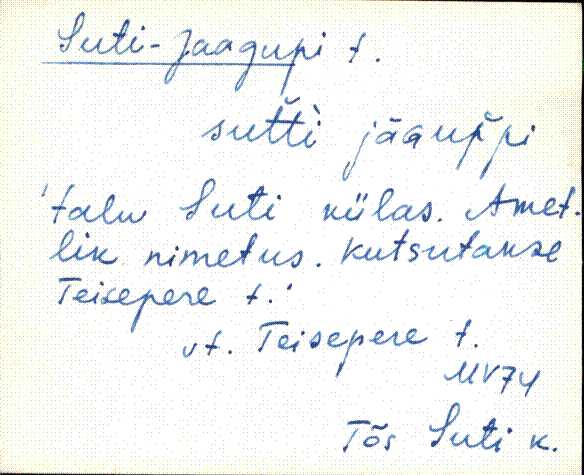 Suti-Jaagupi t.
sut̆t̆ì jāaup̆pi
'talu Suti külas. Amet-
lik nimetus. Kutsutakse
Teisepere t.'
vt. Teisepere t.
MV74
Tõs Suti k.